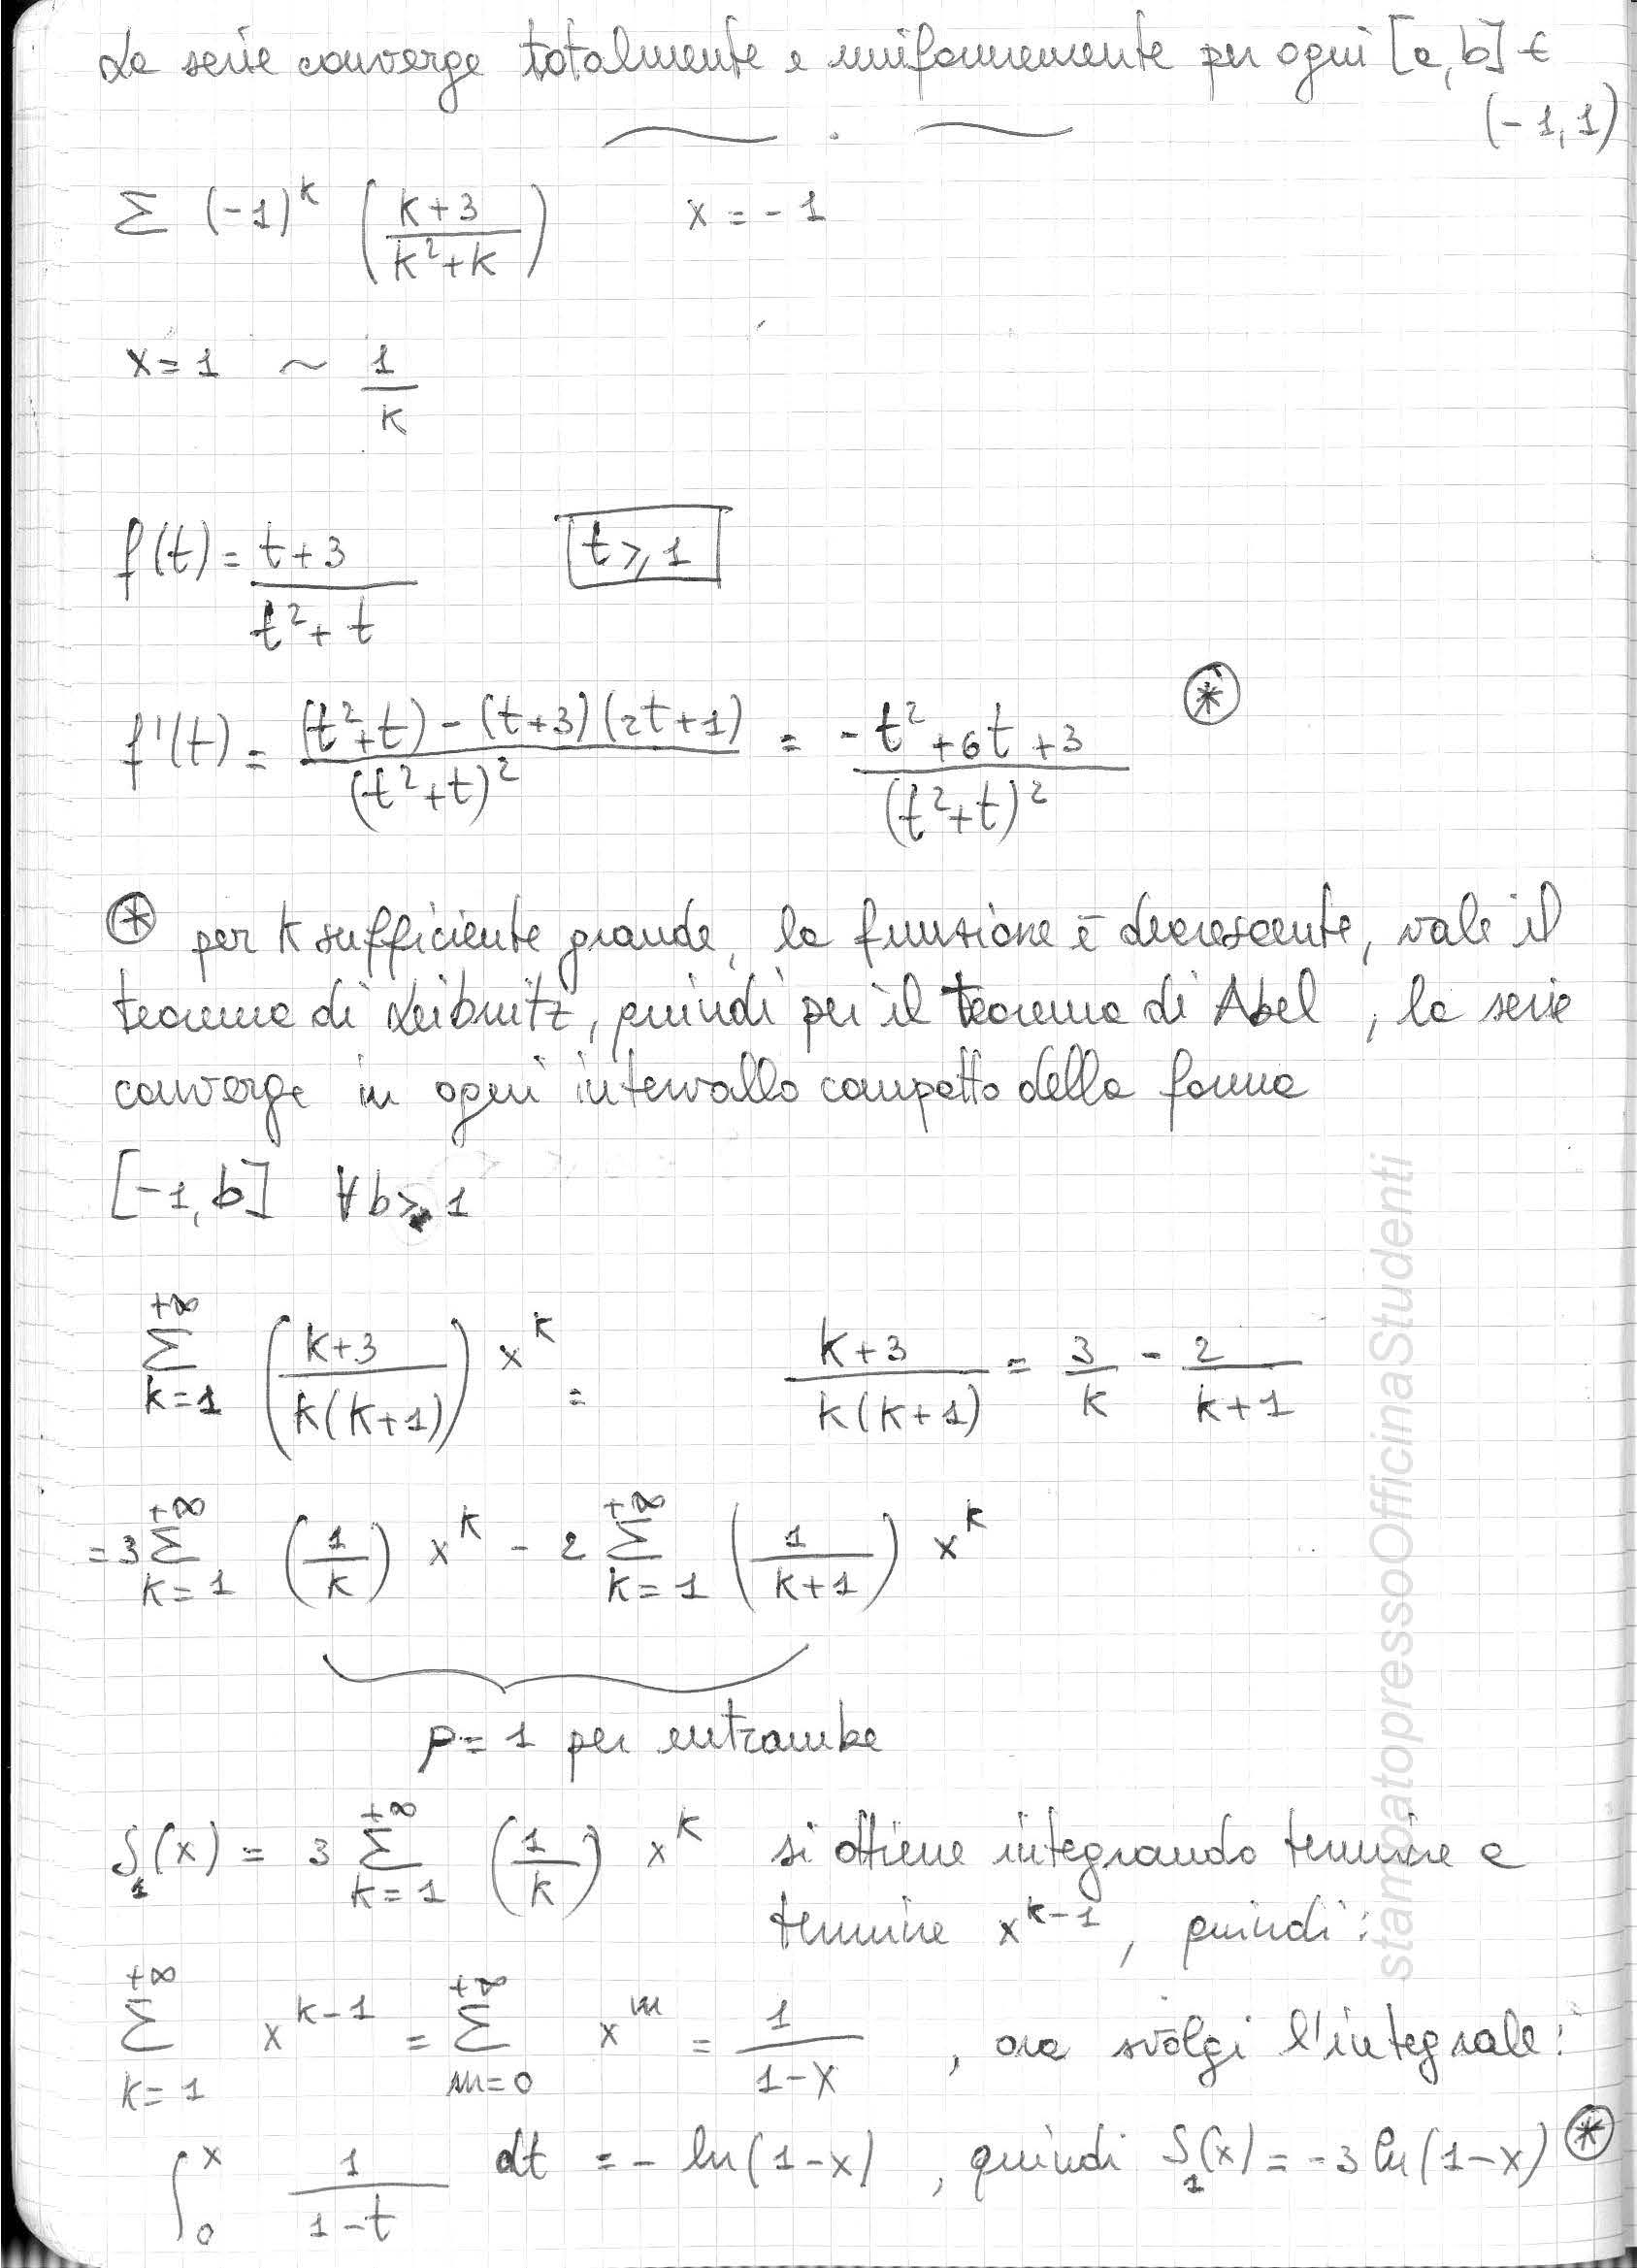 La serie converge totalmente e uniformemente per ogni [a,b] ∈
(-1,1)
Σ (-1)^k ( (k+3)/(k²+k) )    x = -1
x = 1 ~ 1/k
f(t) = (t+3)/(t²+t)    t ⩾ 1
f'(t) = ((t²+t) - (t+3)(2t+1))/(t²+t)² = (-t²+6t+3)/(t²+t)² ⊛
⊛ per k sufficiente grande, la funzione è decrescente, vale il
teorema di Leibnitz, quindi per il teorema di Abel, la serie
converge in ogni intervallo compatto della forma
[-1,b] ∀b ⩾ 1
Σ_{k=1}^{+∞} ( (k+3)/(k(k+1)) ) x^k =    (k+3)/(k(k+1)) = 3/k - 2/(k+1)
= 3 Σ_{k=1}^{+∞} (1/k) x^k - 2 Σ_{k=1}^{+∞} (1/(k+1)) x^k
ρ = 1 per entrambe
S₁(x) = 3 Σ_{k=1}^{+∞} (1/k) x^k si ottiene integrando termine a
termine x^{k-1}, quindi:
Σ_{k=1}^{+∞} x^{k-1} = Σ_{m=0}^{+∞} x^m = 1/(1-x), ora svolgi l'integrale:
∫_0^x 1/(1-t) dt = - ln(1-x), quindi S₁(x) = -3 ln(1-x) ⊛
stampatopressoOfficinaStudenti